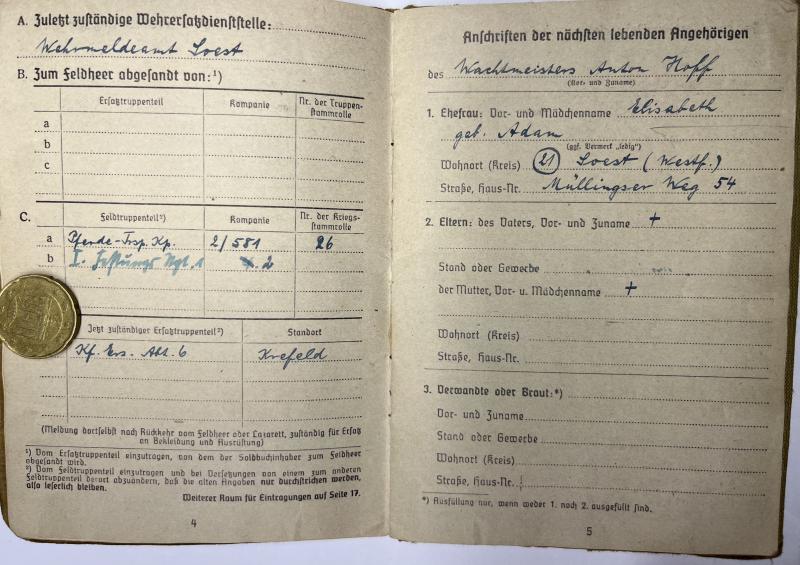 A. Zuletzt zuständige Wehrersatzdienststelle:
Wehrmeldeamt Soest
B. Zum Feldheer abgesandt von:¹)
Ersatztruppenteil Kompanie Nr. der Truppen-
stammrolle
a
b
c
C. Feldtruppenteil²) Kompanie Nr. der Kriegs-
stammrolle
a Pferde-Trsp. Kp. 2/581 26
b I. Festungs Rgt. 1 2
Jetzt zuständiger Ersatztruppenteil²) Standort
Kf. Ers. Abt. 6 Krefeld
(Meldung dortselbst nach Rückkehr vom Feldheer oder Lazarett, zuständig für Ersatz
an Bekleidung und Ausrüstung)
¹) Vom Ersatztruppenteil einzutragen, von dem der Soldbuchinhaber zum Feldheer
abgesandt wird.
²) Vom Feldtruppenteil einzutragen und bei Versetzungen von einem zum anderen
Feldtruppenteil derart abzuändern, daß die alten Angaben nur durchstrichen werden,
also leserlich bleiben.
Weiterer Raum für Eintragungen auf Seite 17.
4
Anschriften der nächsten lebenden Angehörigen
des Wachtmeisters Anton Hoff
(Vor- und Zuname)
1. Ehefrau: Vor- und Mädchenname Elisabeth
geb. Adam
(ggf. Vermerk „ledig")
Wohnort (Kreis) 21 Soest (Westf.)
Straße, Haus-Nr. Müllingser Weg 54
2. Eltern: des Vaters, Vor- und Zuname +
Stand oder Gewerbe
der Mutter, Vor- u. Mädchenname +
Wohnort (Kreis)
Straße, Haus-Nr.
3. Verwandte oder Braut:*)
Vor- und Zuname
Stand oder Gewerbe
Wohnort (Kreis)
Straße, Haus-Nr.
*) Ausfüllung nur, wenn weder 1. noch 2. ausgefüllt sind.
5